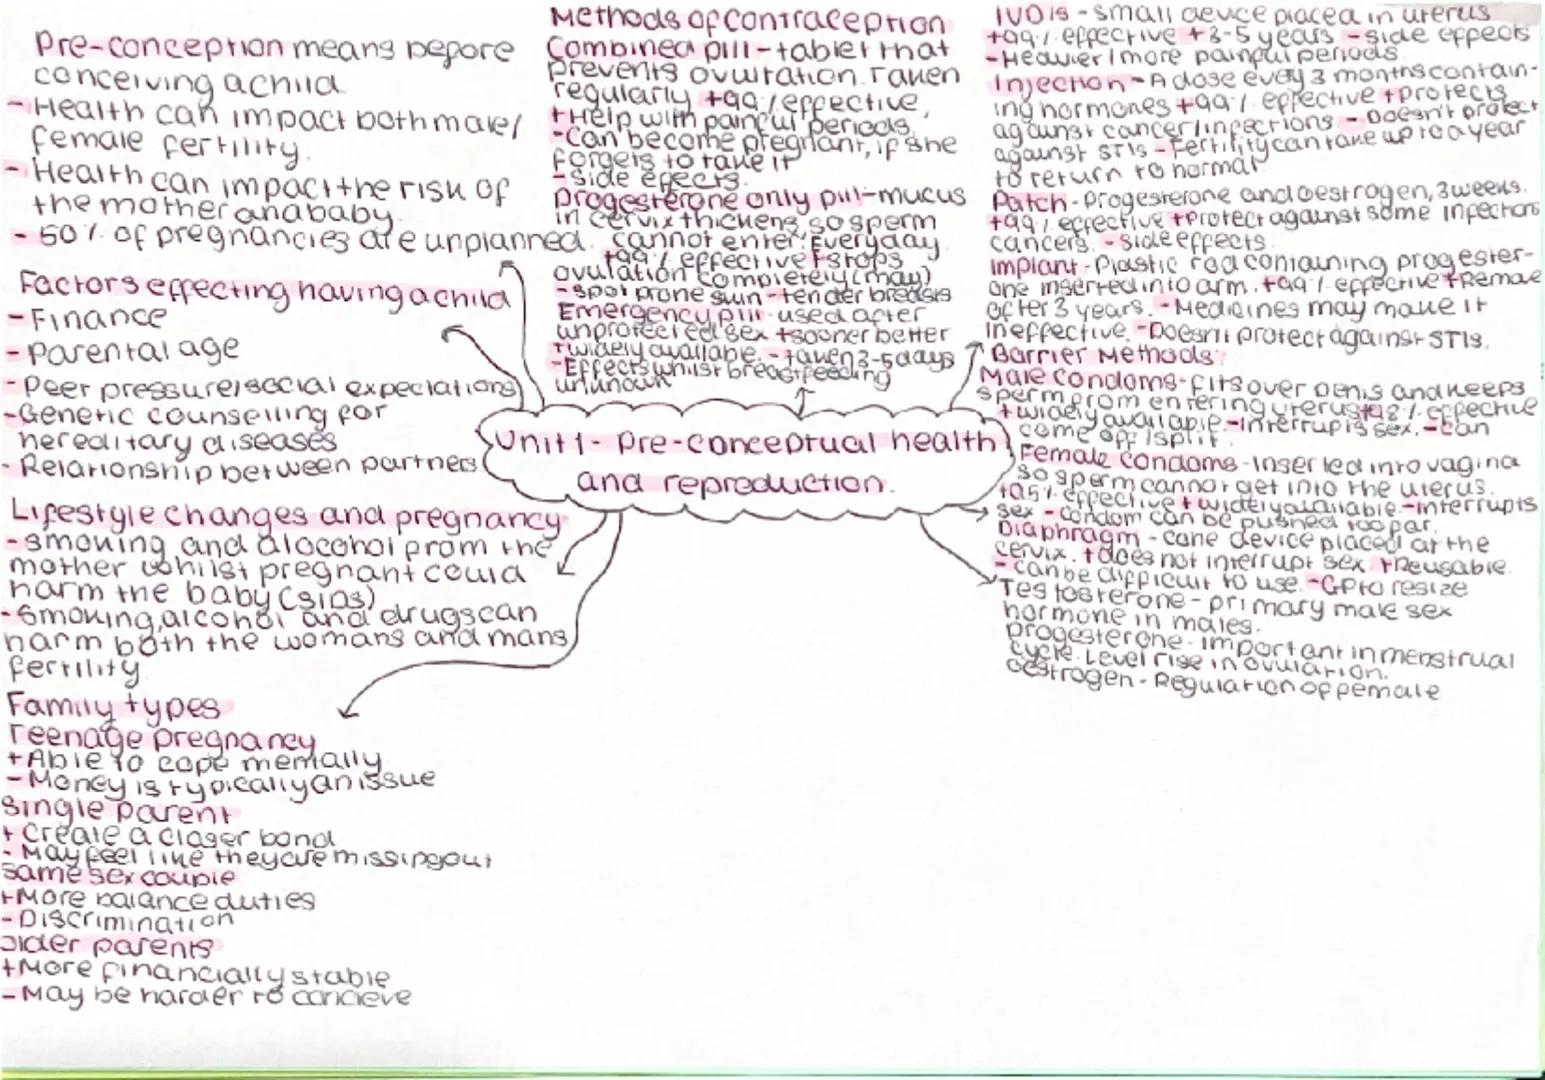 Pre-conception means before
conceiving a child
- Health can impact both male/
female fertility.
- Health can impact the risk of
the mother and baby.
- 50% of pregnancies are unplanned.
Factors effecting having a child
- Finance
- Parental age
- Peer pressure/social expectations
- Genetic counselling for
hereditary diseases
- Relationship between partners
Lifestyle changes and pregnancy
- smoking and alocohol from the
mother whilst pregnant could
harm the baby (sids)
- Smoking, alcohol and drugs can
harm both the womans and mans
fertility
Family types
Teenage pregnancy
+ Able to cope mentally
- Money is typically an issue
Single parent
+ Create a closer bond
- May feel like they are missing out
Same sex couple
+ More balance duties
- Discrimination
Older parents
+ More financially stable
- May be harder to concieve
Methods of contraception
Combined pill - tablet that
prevents ovulation. Taken
regularly +99% effective,
+ Help with painful periods,
- Can become pregnant, if she
forgets to take it
- Side effects.
Progesterone only pill - mucus
in cervix thickens, so sperm
cannot enter. Everyday.
+99% effective + stops
ovulation completely (may)
- spot prone skin - tender breasts
Emergency pill - used after
unprotected sex + sooner better
+ widely available. - taken 3-5 days
- Effects whilst breastfeeding
unknown
Unit 1 - Pre-conceptual health
and reproduction.
IVDIS - small device placed in uterus
+99% effective + 3-5 years - side effects
- Heavier/more painful periods.
Injection - A dose every 3 months contain-
ing hormones +99% effective + protects
against cancer/infections - Doesn't protect
against STIs - Fertility can take up to a year
to return to normal
Patch - Progesterone and oestrogen, 3 weeks.
+99% effective + protect against some infections
cancers. - Side effects.
Implant - Plastic rod containing progester-
one inserted into arm. +99% effective + Remove
after 3 years. - Medicines may make it
ineffective. - Doesn't protect against STIs.
Barrier Methods:
Male condoms - fits over penis and keeps
sperm from entering uterus +98% effective
+ widely available. - Interrupts sex. - can
come off/split.
Female condoms - Inserted into vagina
so sperm cannot get into the uterus.
+95% effective + widely available - Interrupts
sex - condom can be pushed too far.
Diaphragm - cone device placed at the
cervix. + does not interrupt sex + Reusable.
- can be difficult to use. - GP to resize
Testosterone - primary male sex
hormone in males.
progesterone - important in menstrual
cycle. Level rise in ovulation.
oestrogen - Regulation of female